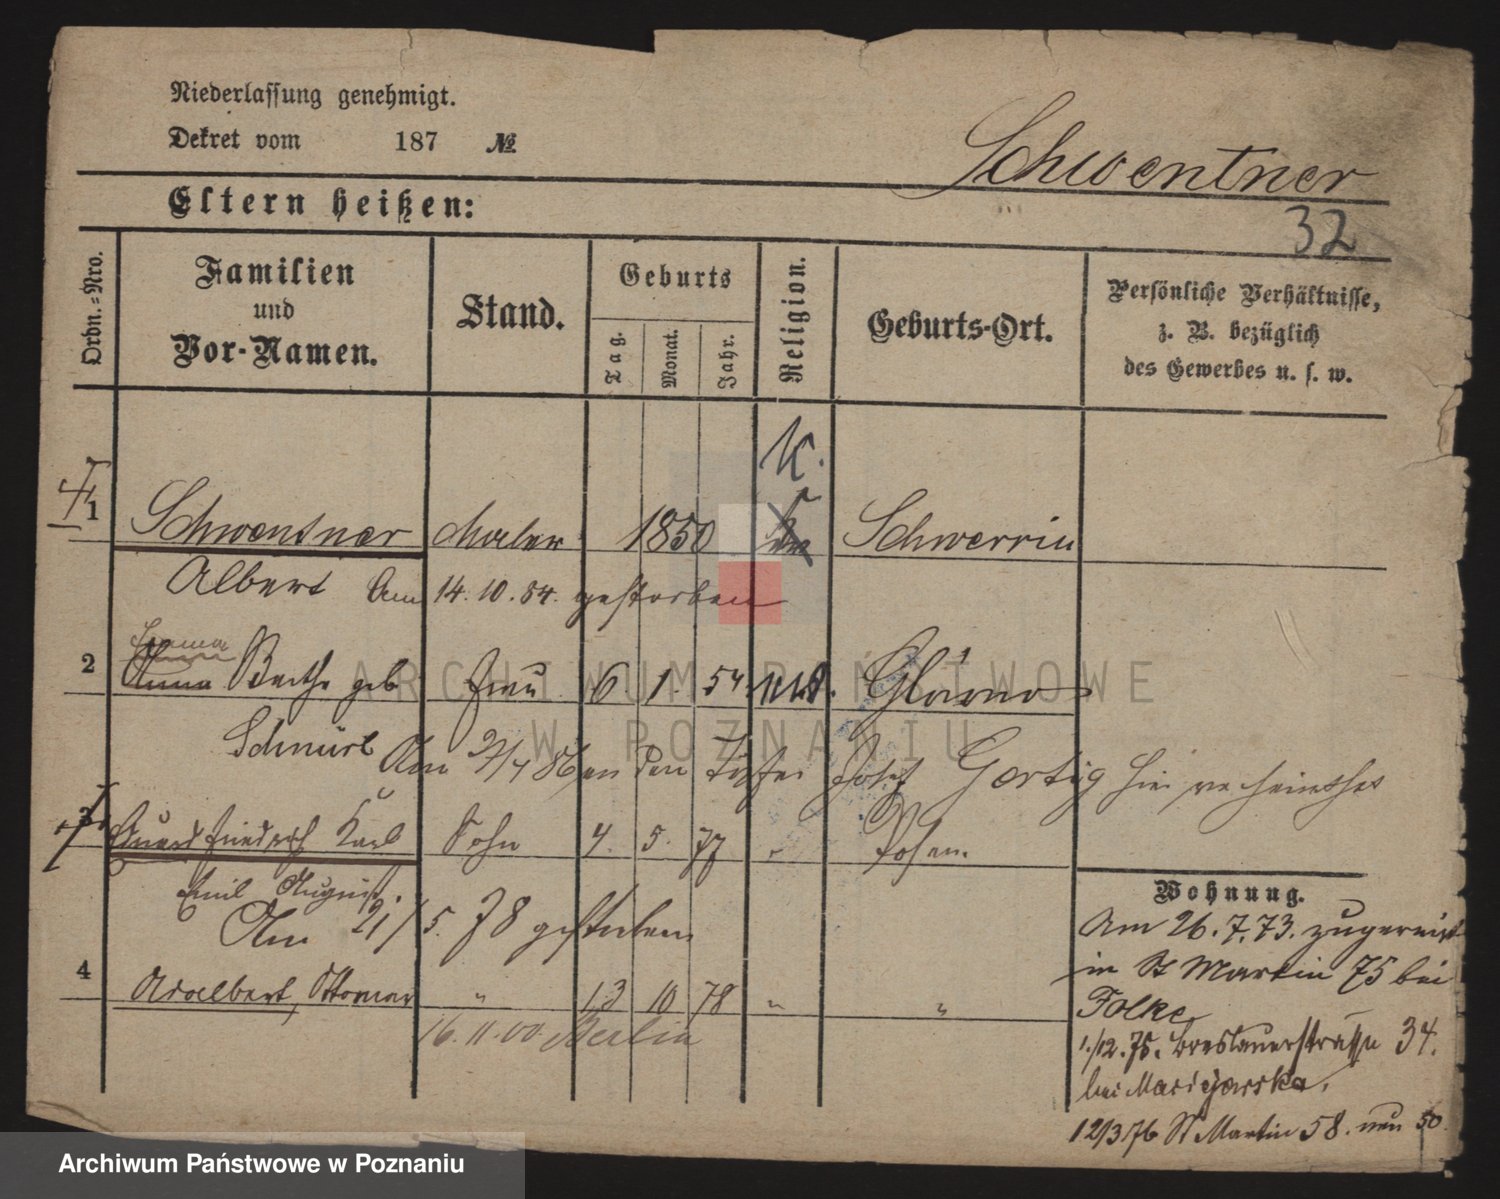 Niederlassung genehmigt.
Dekret vom 187 №
Schwentner
Eltern heißen:
32
Ordn.-Nro.
Familien
und
Vor-Namen.
Stand.
Geburts
Tag.
Monat.
Jahr.
Religion.
Geburts-Ort.
Persönliche Verhältnisse,
z. B. bezüglich
des Gewerbes u. s. w.
K.
1 Schwentner Maler 1850 Schwerrin
Albert Am 14.10.84. gestorben
2 Anna Berthe geb Frau 6 1. 54.
Schnürl Am 2/7 86 an den Töpfer Josef Goertig hier verheirathet
3 Friedrich Karl Sohn 4. 5. 77 " Posen.
Emil August.
Am 21/5.78 gestorben
4 Adalbert, Ottomar " 13 10 78 " "
16.11.00 Berlin
Wohnung.
Am 26.7.73. zugereist
in St Martin 75 bei
Folke
1./12.75. Breslauerstrasse 34.
bei
12/3 76 St Martin 58. neu 50
ARCHIWUM PAŃSTWOWE
W POZNANIU
Archiwum Państwowe w Poznaniu